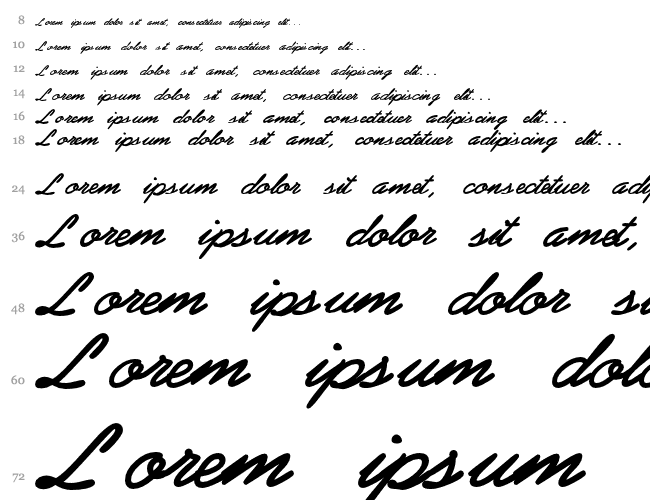 8 Lorem ipsum dolor sit amet, consectetuer adipiscing elit...
10 Lorem ipsum dolor sit amet, consectetuer adipiscing elit...
12 Lorem ipsum dolor sit amet, consectetuer adipiscing elit...
14 Lorem ipsum dolor sit amet, consectetuer adipiscing elit...
16 Lorem ipsum dolor sit amet, consectetuer adipiscing elit...
18 Lorem ipsum dolor sit amet, consectetuer adipiscing elit...
24 Lorem ipsum dolor sit amet, consectetuer adip
36 Lorem ipsum dolor sit amet,
48 Lorem ipsum dolor si
60 Lorem ipsum dolo
72 Lorem ipsum